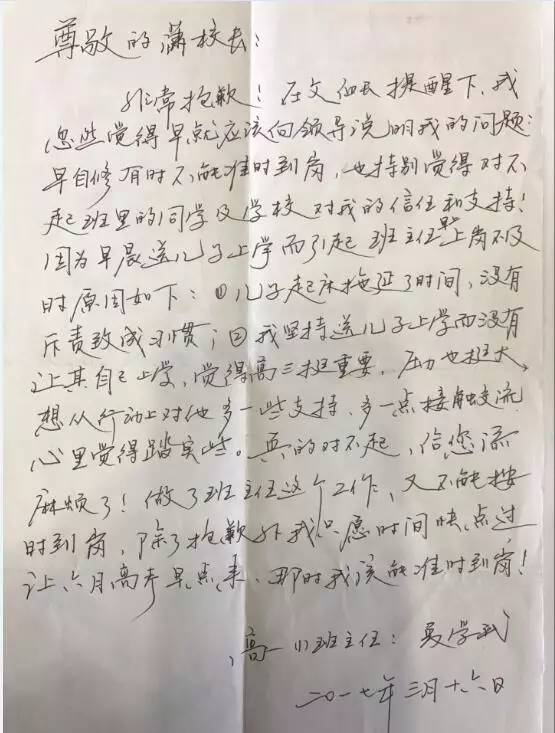 尊敬的潇校长：
非常抱歉！在文 提醒下，我
忽然觉得早就应该向领导说明我的问题：
早自修有时不能准时到岗，也特别觉得对不
起班里的同学及学校对我的信任和支持！
因为早晨送儿子上学而引起班主任早上岗不及
时原因如下：①儿子起床拖延了时间，没有
斥责致成习惯；②我坚持送儿子上学而没有
让其自己上学，觉得高三挺重要，压力也挺大，
想从行动上对他多一些支持、多一点接触交流
心里觉得踏实些。真的对不起，给您添
麻烦了！做了班主任这个工作，又不能按
时到岗，除了抱歉外我只愿时间快点过，
让六月高考早点来，那时我该能准时到岗！
高一(1)班主任：夏学武
二〇一七年三月十六日